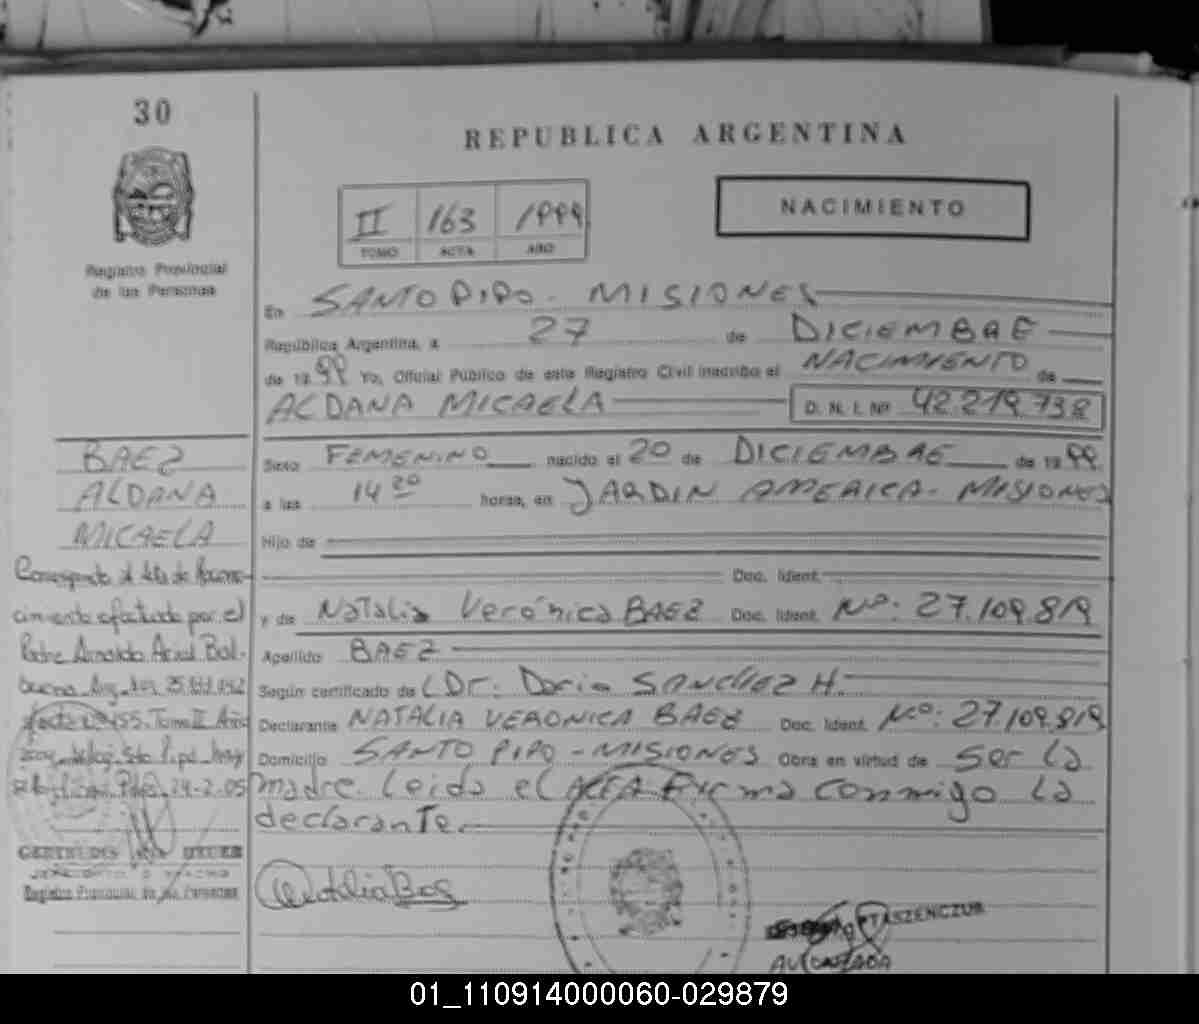 30
REPUBLICA ARGENTINA
II 163 1999
TOMO ACTA AÑO
NACIMIENTO
Registro Provincial
de las Personas
En SANTO PIPO - MISIONES
República Argentina, a 27 de DICIEMBRE
de 1999 Yo, Oficial Público de este Registro Civil inscribo el NACIMIENTO de
ALDANA MICAELA D. N. I. Nº 42.219.738
BAEZ
ALDANA
MICAELA
Sexo FEMENINO nacido el 20 de DICIEMBRE de 1999.
a las 14 20 horas, en JARDIN AMERICA - MISIONES
Hijo de
Doc. Ident.
y de Natalia Verónica BAEZ Doc. Ident. Nº: 27.109.819
Apellido BAEZ
Según certificado de Dr. Dario SANCHEZ H.
Declarante NATALIA VERONICA BAEZ Doc. Ident. Nº: 27.109.819
Domicilio SANTO PIPO - MISIONES Obra en virtud de Ser la
madre. Leida el ACTA Firma conmigo la
declarante.
efectuado por el
Padre Arnaldo Ariel
Tomo II Año
24-2-05
GERTRUDIS
Registro Provincial de las Personas
Natalia Baez
PTASZENCZUK
AUTORIZADA
01_110914000060-029879